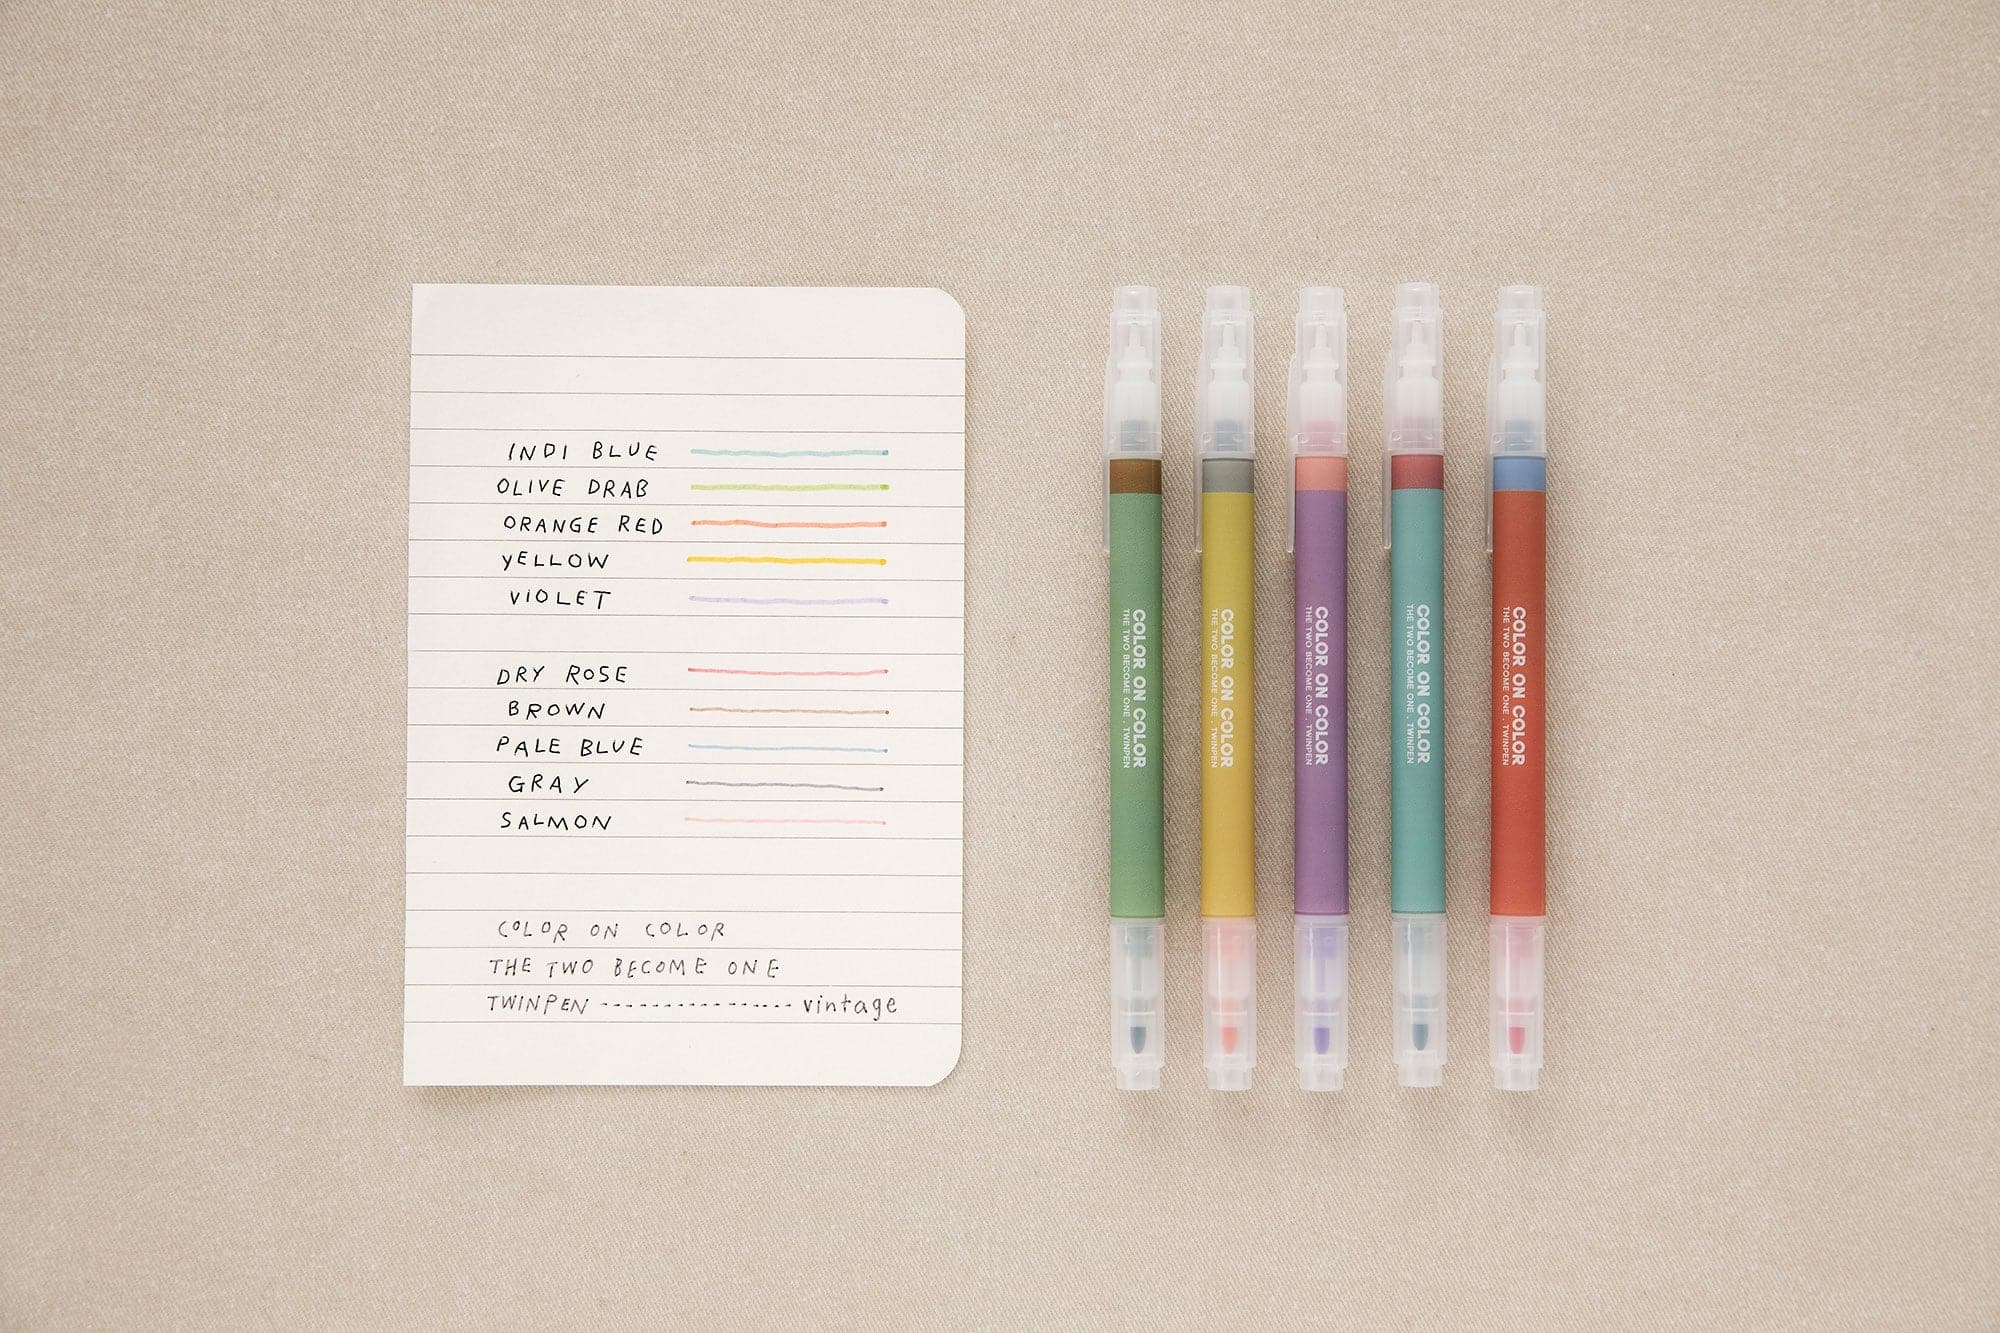 INDI BLUE
OLIVE DRAB
ORANGE RED
yELLOW
VIOLET
DRY ROSE
BROWN
PALE BLUE
GRAY
SALMON
COLOR ON COLOR
THE TWO BECOME ONE
TWINPEN ---------------- vintage
COLOR ON COLOR
THE TWO BECOME ONE . TWINPEN
COLOR ON COLOR
THE TWO BECOME ONE . TWINPEN
COLOR ON COLOR
THE TWO BECOME ONE . TWINPEN
COLOR ON COLOR
THE TWO BECOME ONE . TWINPEN
COLOR ON COLOR
THE TWO BECOME ONE . TWINPEN